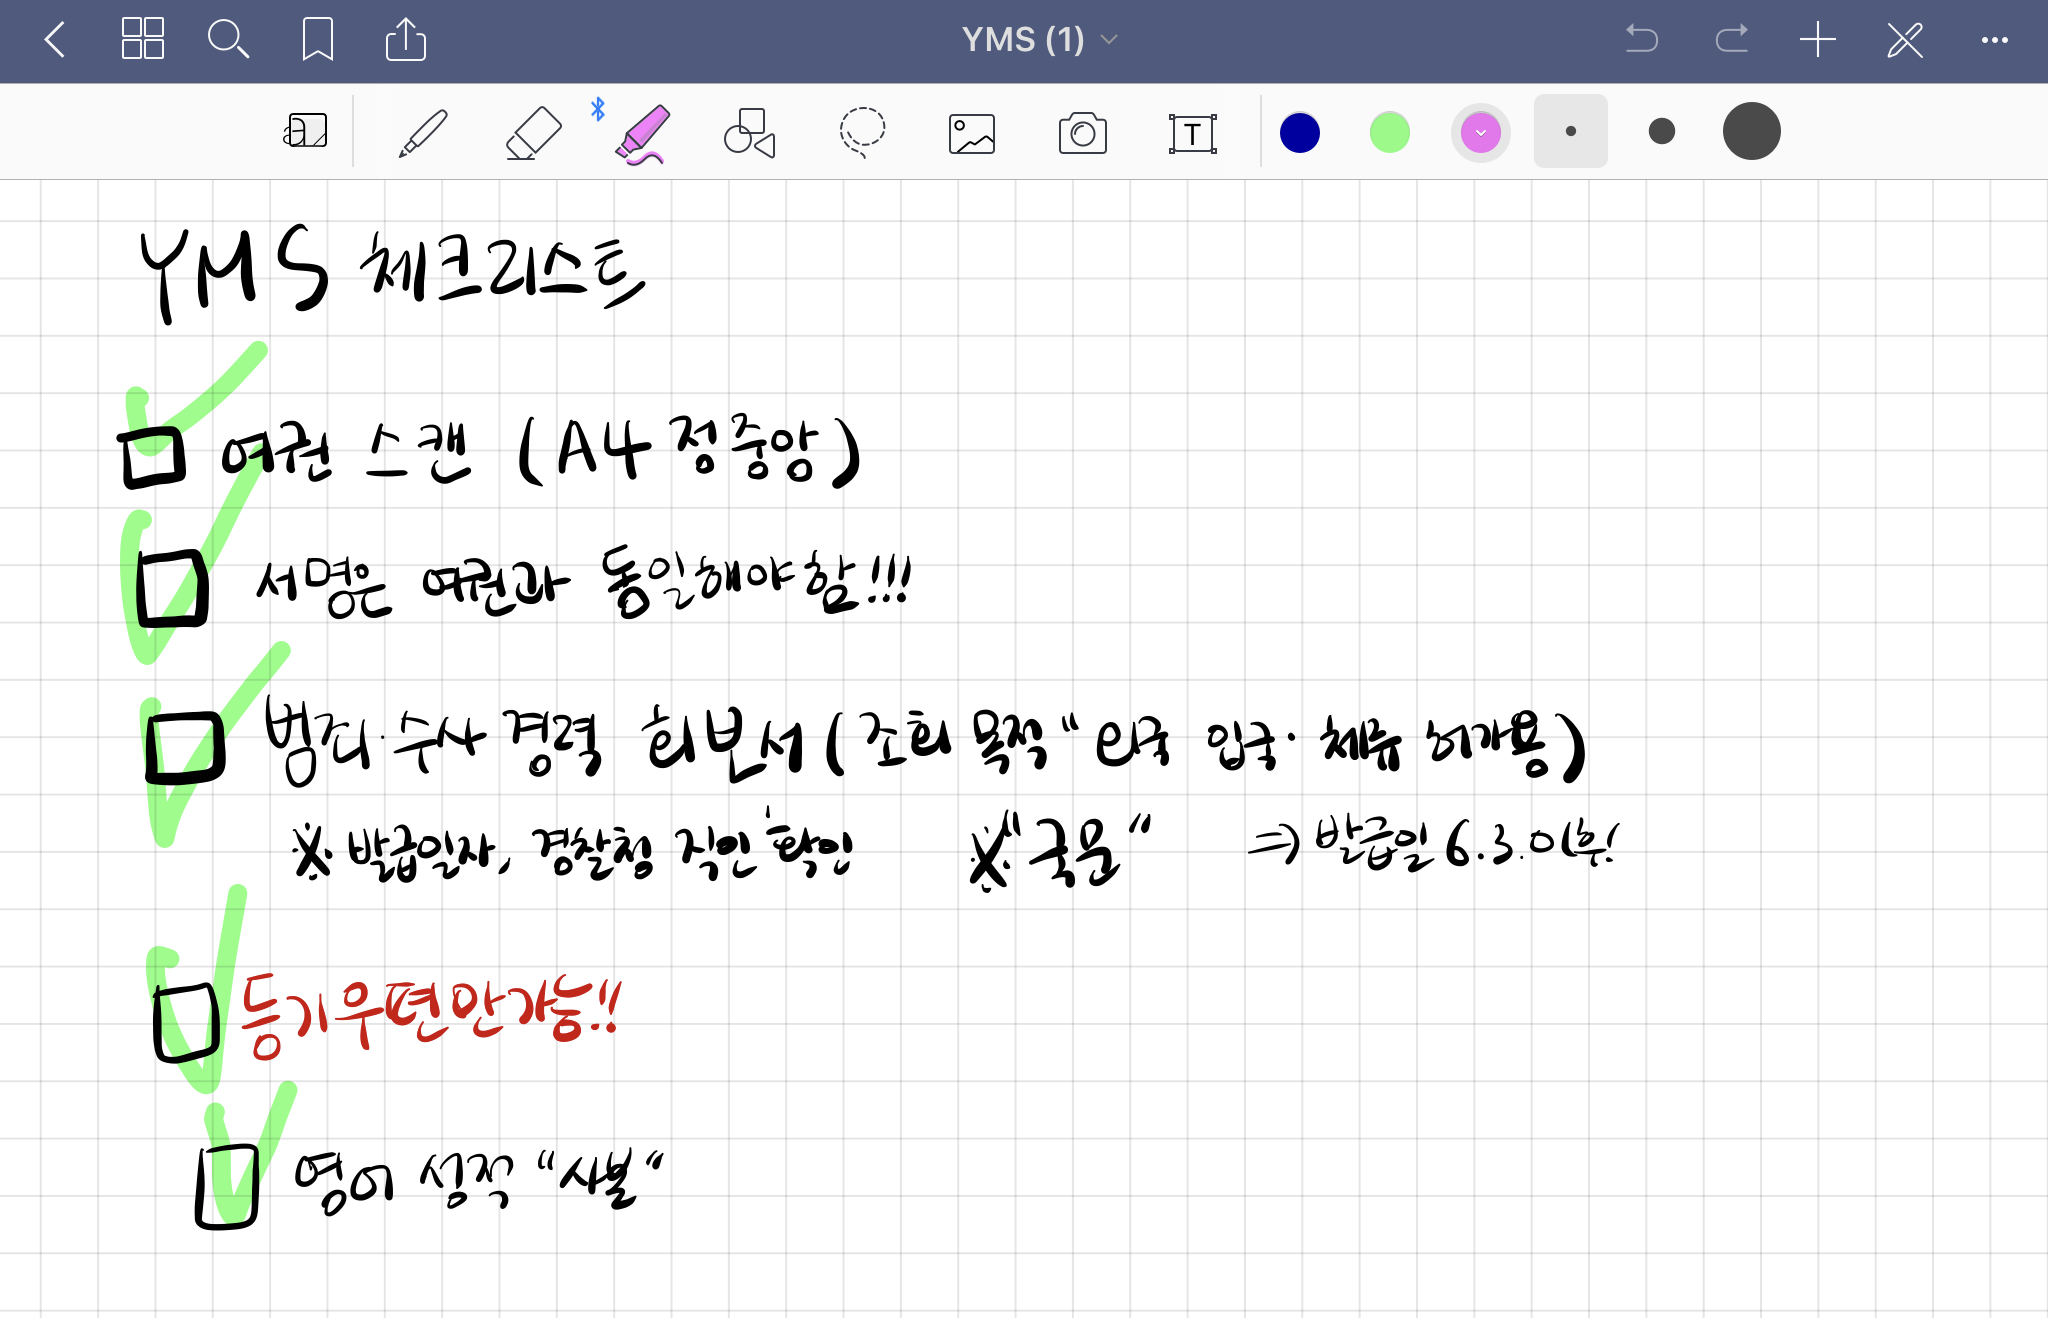 YMS (1)
T
YMS 체크리스트
여권 스캔 (A4 정중앙)
서명은 여권과 동일해야함!!!
범죄·수사 경력 회보서 (조회 목적 “외국 입국·체류 허가용)
※ 발급일자, 경찰청 직인 확인 ※ “국문” ⇒ 발급일 6.3.이후!
등기우편만가능!!
영어 성적 “사본”